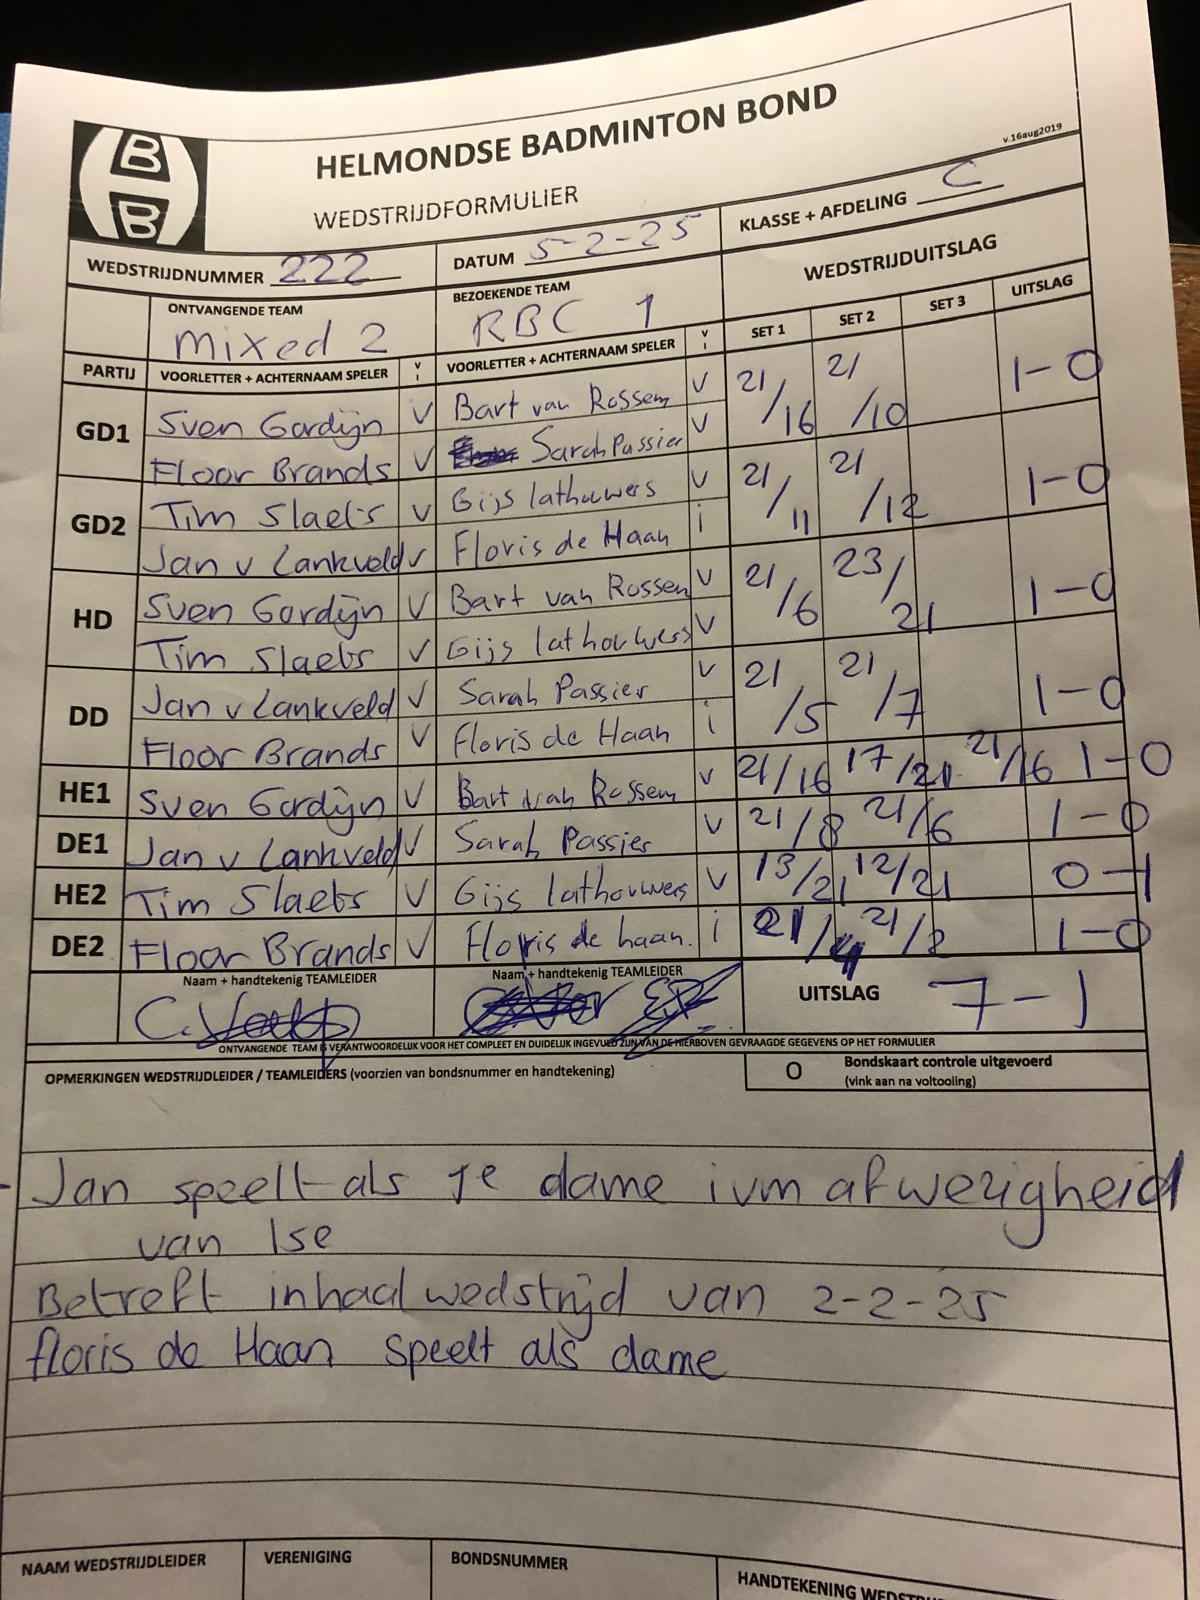 B
B
HELMONDSE BADMINTON BOND
v.16aug2019
WEDSTRIJDFORMULIER
WEDSTRIJDNUMMER 222
DATUM 5-2-25
KLASSE + AFDELING C
ONTVANGENDE TEAM
BEZOEKENDE TEAM
WEDSTRIJDUITSLAG
mixed 2
RBC 1
SET 1 SET 2 SET 3 UITSLAG
PARTIJ VOORLETTER + ACHTERNAAM SPELER v i VOORLETTER + ACHTERNAAM SPELER v i
GD1 Sven Gordijn v Bart van Rossem v 21/16 21/10 1-0
Floor Brands v Sarah Passier v
GD2 Tim Slaets v Gijs lathouwers v 21/11 21/12 1-0
Jan v Lankveld v Floris de Haan i
HD Sven Gordijn v Bart van Rossem v 21/6 23/21 1-0
Tim Slaets v Gijs lathouwers v
DD Jan v Lankveld v Sarah Passier v 21/5 21/7 1-0
Floor Brands v Floris de Haan i
HE1 Sven Gordijn v Bart van Rossem v 21/16 17/21 21/16 1-0
DE1 Jan v Lankveld v Sarah Passier v 21/8 21/6 1-0
HE2 Tim Slaets v Gijs lathouwers v 13/21 12/21 0-1
DE2 Floor Brands v Floris de haan. i 21/4 21/2 1-0
Naam + handtekenig TEAMLEIDER
Naam + handtekenig TEAMLEIDER
UITSLAG 7-1
C.
ONTVANGENDE TEAM IS VERANTWOORDELIJK VOOR HET COMPLEET EN DUIDELIJK INGEVULD ZIJN VAN DE HIERBOVEN GEVRAAGDE GEGEVENS OP HET FORMULIER
OPMERKINGEN WEDSTRIJDLEIDER / TEAMLEIDERS (voorzien van bondsnummer en handtekening)
O Bondskaart controle uitgevoerd
(vink aan na voltooling)
- Jan speelt als 1e dame ivm afwezigheid
van Ise
Betreft inhaalwedstrijd van 2-2-25
floris de Haan speelt als dame
NAAM WEDSTRIJDLEIDER
VERENIGING
BONDSNUMMER
HANDTEKENING